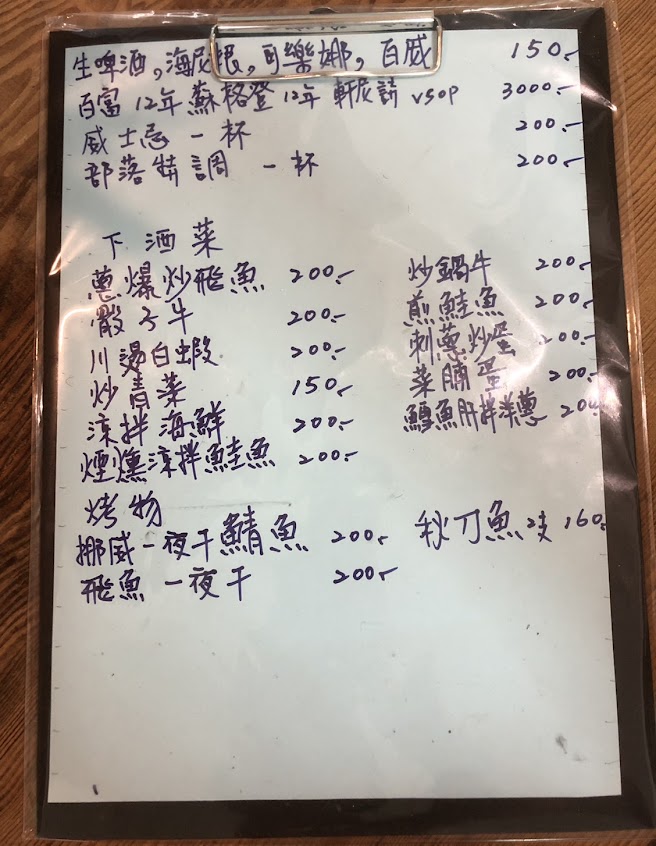 生啤酒,海尼根,可樂娜,百威 150.-
百富12年 蘇格登12年 軒尼詩 vsop 3000.-
威士忌 一杯 200.-
部落特調 一杯 200.-
下酒菜
蔥爆炒飛魚 200.-
骰子牛 200.-
川燙白蝦 200.-
炒青菜 150.-
涼拌海鮮 200.-
煙燻涼拌鮭魚 200.-
炒鍋牛 200.-
煎鮭魚 200.-
刺蔥炒蛋 200.-
菜脯蛋 200.-
鱈魚肝拌洋蔥 200.-
烤物
挪威一夜干鯖魚 200.-
飛魚一夜干 200.-
秋刀魚 2支 160.